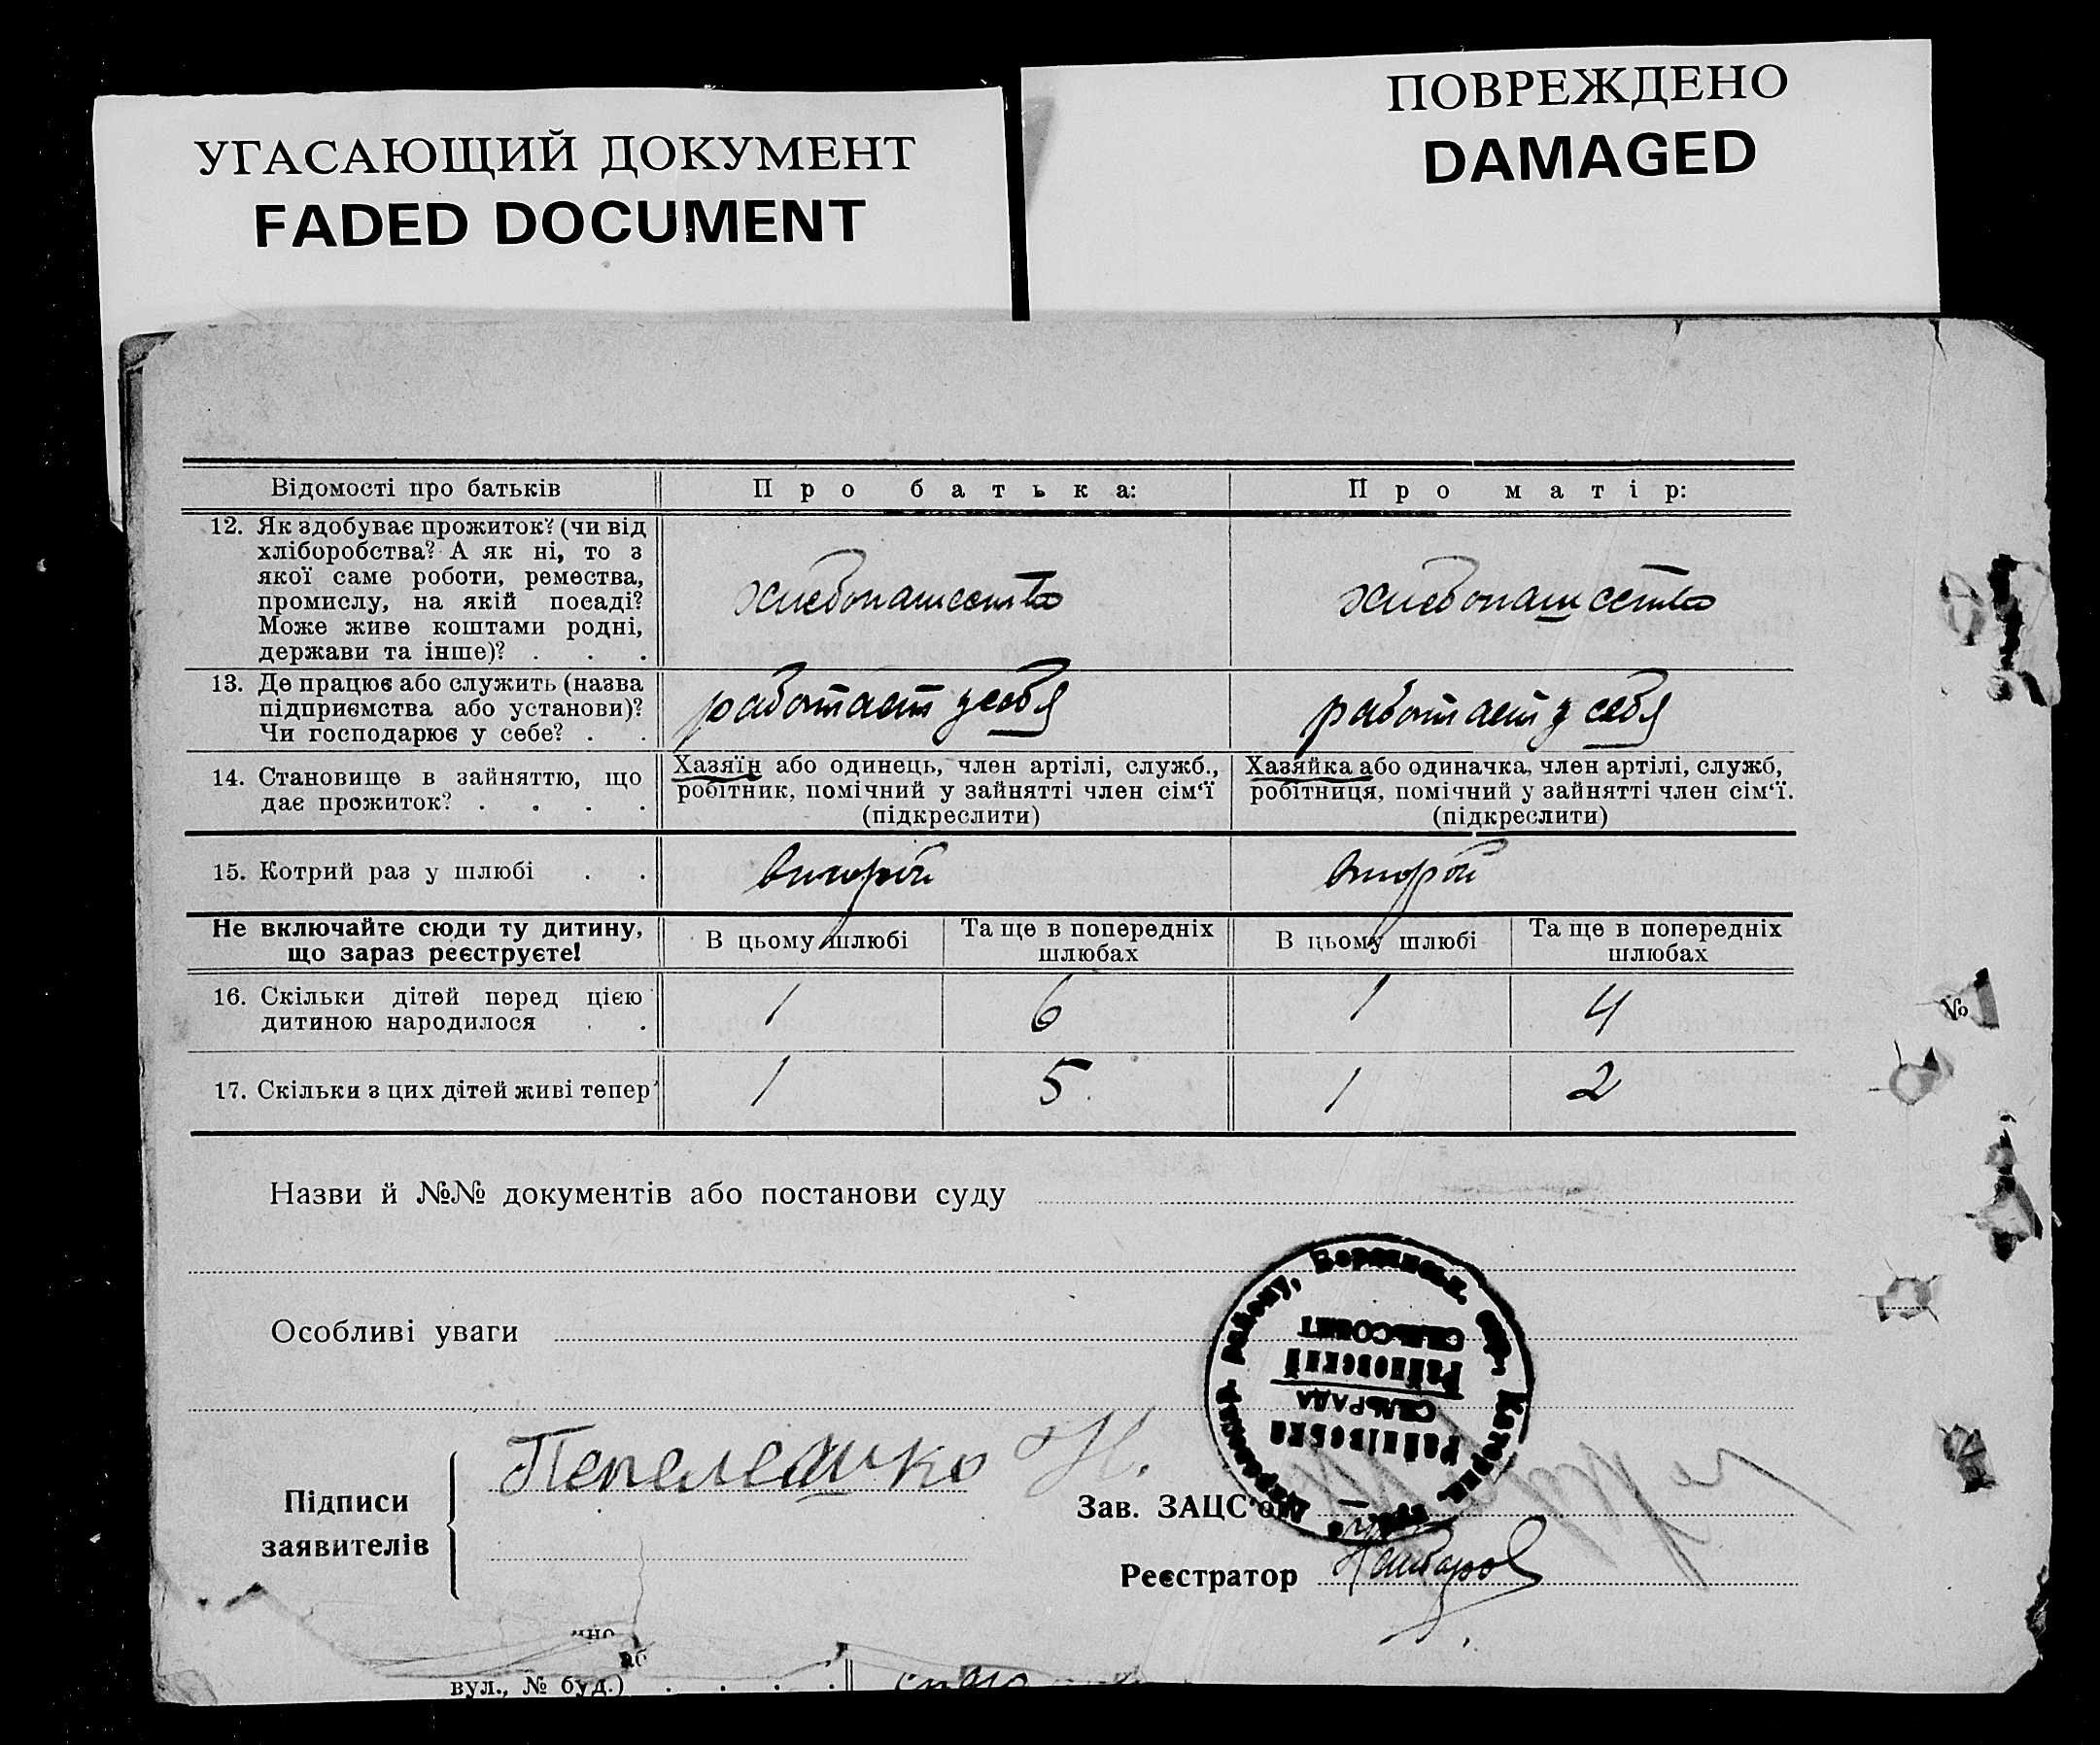 УГАСАЮЩИЙ ДОКУМЕНТ
FADED DOCUMENT
ПОВРЕЖДЕНО
DAMAGED
Відомості про батьків
Про батька:
Про матір:
12. Як здобуває прожиток? (чи від
хліборобства? А як ні, то з
якої саме роботи, ремества,
промислу, на якій посаді?
Може живе коштами родні,
держави та інше)? . . .
хлебопашество
хлебопашество
13. Де працює або служить (назва
підприємства або установи)?
Чи господарює у себе? . .
работает у себя
работает у себя
14. Становище в зайняттю, що
дає прожиток? . . . .
Хазяїн або одинець, член артілі, служб.,
робітник, помічний у зайнятті член сім‘ї
(підкреслити)
Хазяйка або одиначка, член артілі, служб,
робітниця, помічний у зайнятті член сім‘ї.
(підкреслити)
15. Котрий раз у шлюбі . .
второй
второй
Не включайте сюди ту дитину,
що зараз реєструєте!
В цьому шлюбі
Та ще в попередніх
шлюбах
В цьому шлюбі
Та ще в попередніх
шлюбах
16. Скільки дітей перед цією
дитиною народилося . .
1
6
1
4
17. Скільки з цих дітей живі тепер
1
5
1
2
Назви й №№ документів або постанови суду
Особливі уваги
району,
Райнівська
СІЛЬРАДА
Райновский
СЕЛЬСОВЕТ
Підписи
заявителів
Пепелешко Н.
Зав. ЗАЦС‘ом
Реєстратор
№
вул., № буд.) . . . .